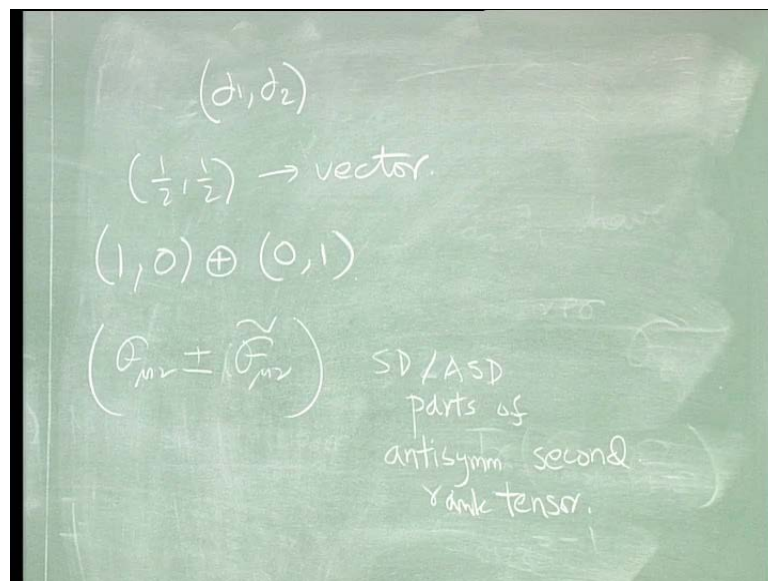 (j1, j2)
(1/2, 1/2) → vector.
(1,0) ⊕ (0,1)
(Fμν ± F̃μν)
SD/ASD
parts of
antisymm second
rank tensor.